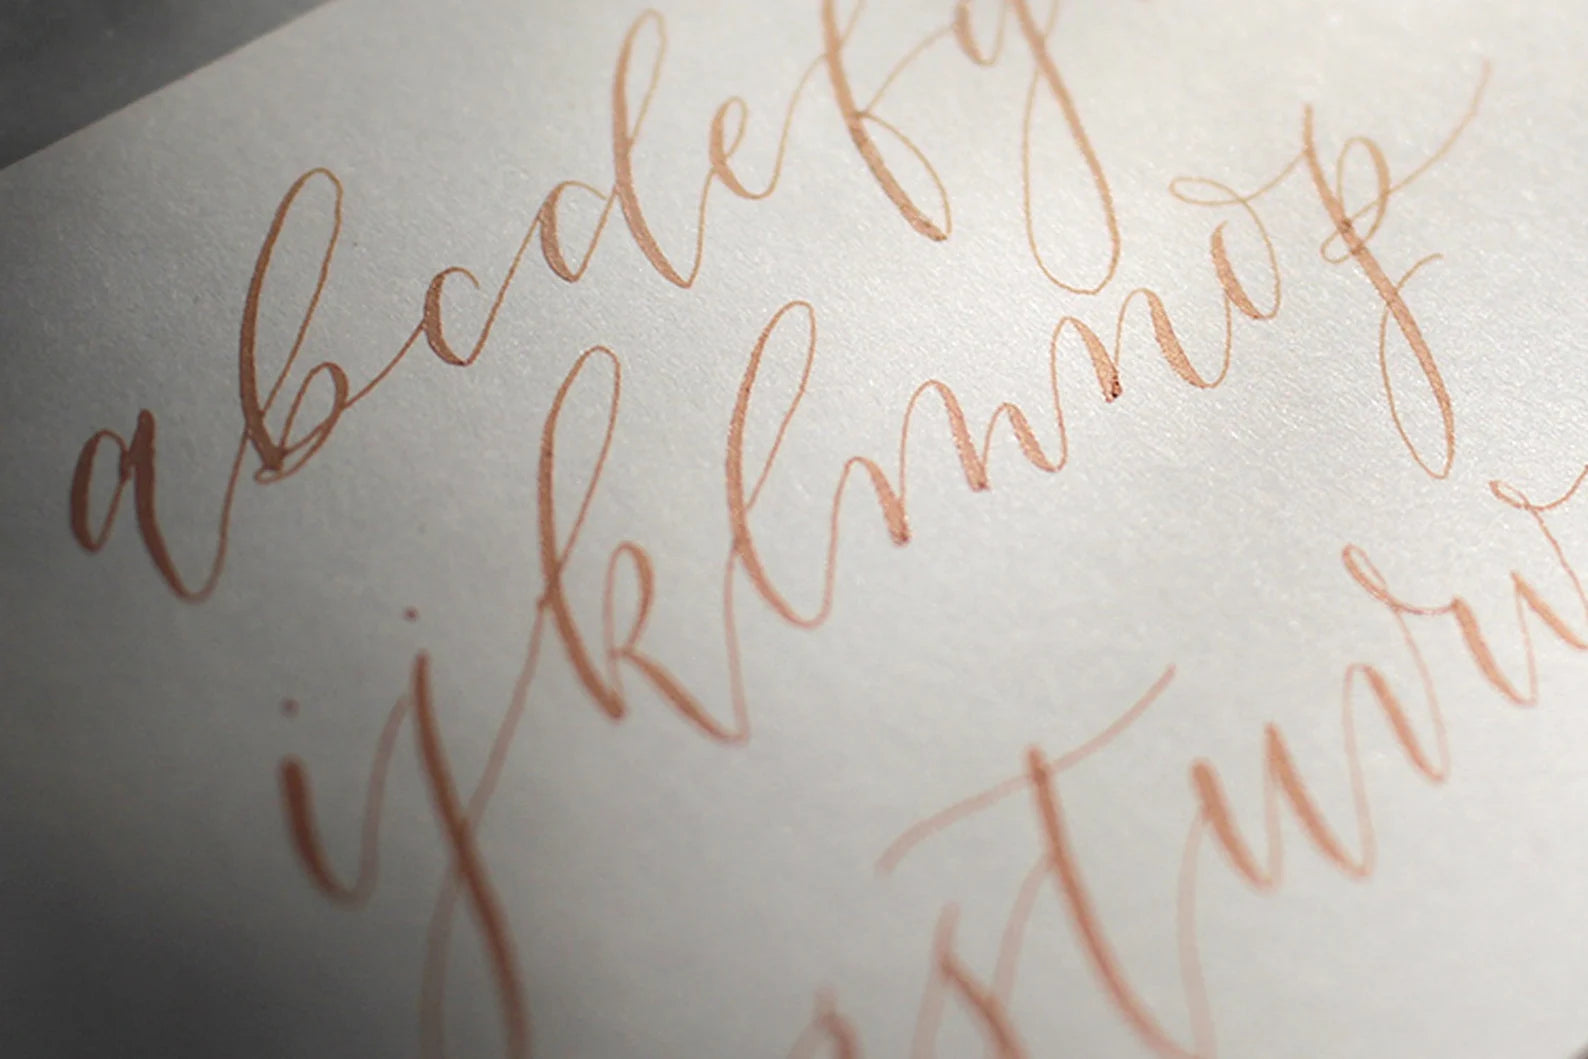 abcdefg
ijklmnop
stuvw